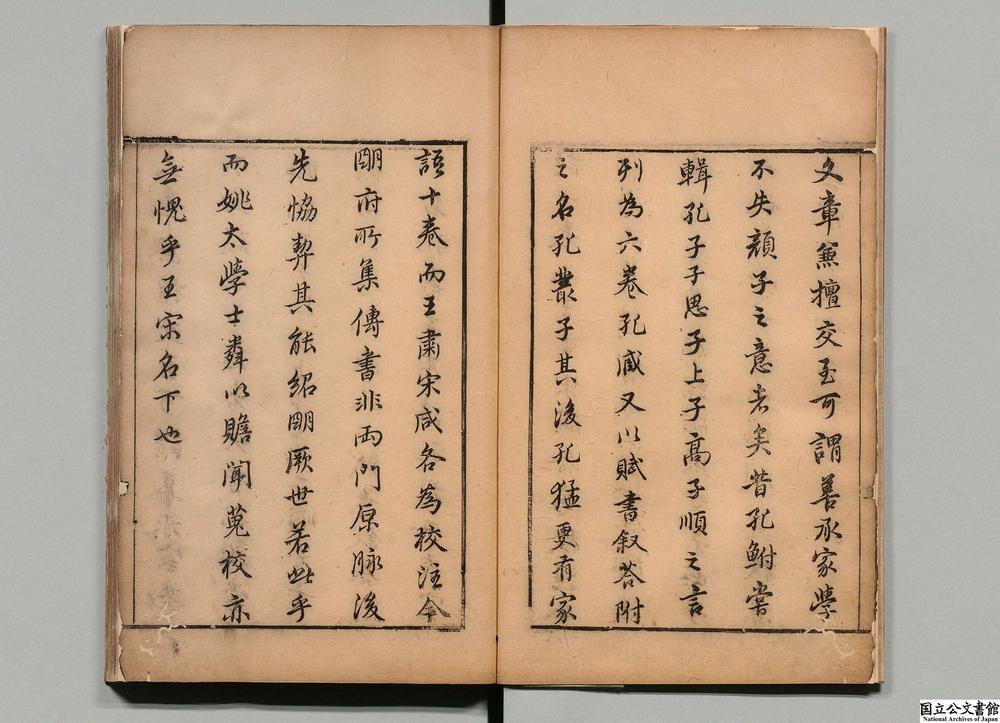 文章兼擅交至可謂善承家學
不失顏子之意者矣昔孔鮒嘗
輯孔子子思子上子高子順之言
列為六卷孔臧又以賦書叙荅附
之名孔叢子其後孔猛更有家
語十卷而王肅宋咸各為校注今
關府所集傳書非兩門原脉後
先恊契其能紹關厥世若此乎
而姚太學士粦以贍聞蒐校亦
無愧乎王宋名下也
国立公文書館
National Archives of Japan